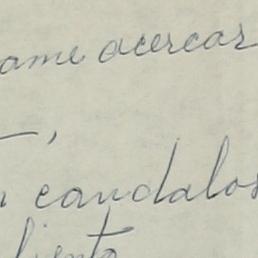 ame acercar
caudalos
liento